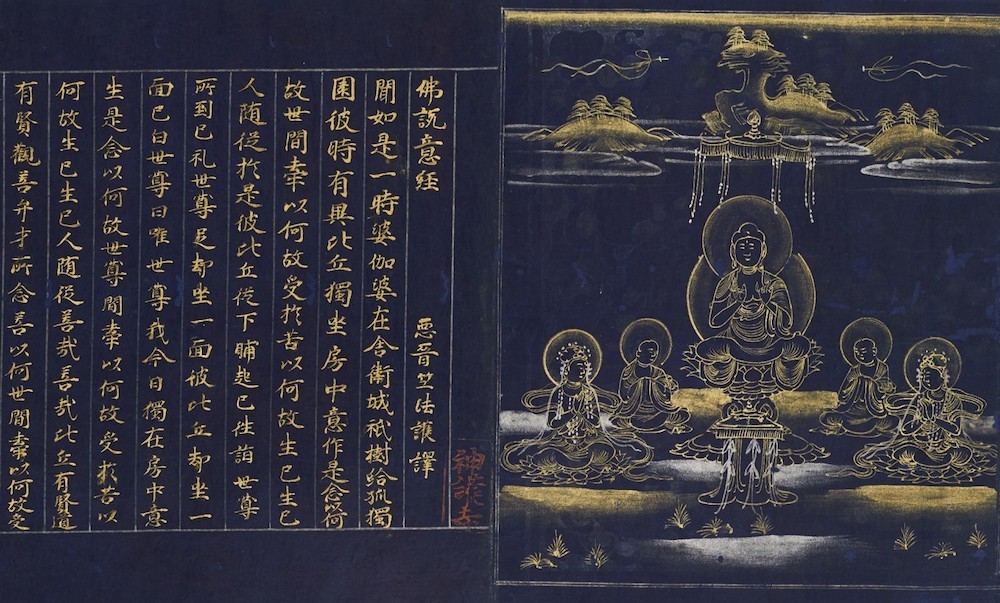 神護寺
佛説意経 悪晋竺法護譯
聞如是一時婆伽婆在舎衛城祇樹給孤獨
園彼時有異比丘獨坐房中意作是念以何
故世間牽以何故受於苦以何故生已生已
人随従於是彼比丘従下晡起已往詣世尊
所到已礼世尊足却坐一面彼比丘却坐一
面已白世尊曰唯世尊我今日獨在房中意
生是念以何故世尊間牽以何故受於苦以
何故生已生已人随従善哉善哉比丘有賢道
有賢觀善弁才所念善以何世間牽以何故受